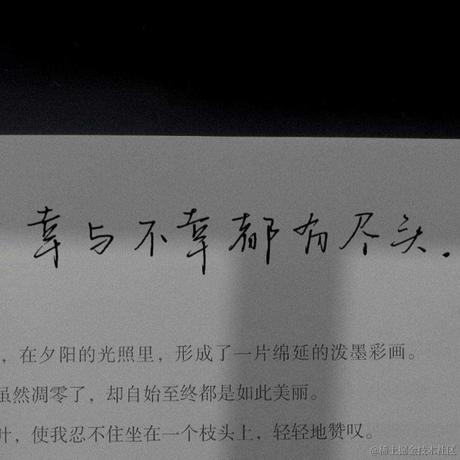 幸与不幸都有尽头.
，在夕阳的光照里，形成了一片绵延的泼墨彩画。
虽然凋零了，却自始至终都是如此美丽。
叶，使我忍不住坐在一个枝头上，轻轻地赞叹。
@稀土掘金技术社区